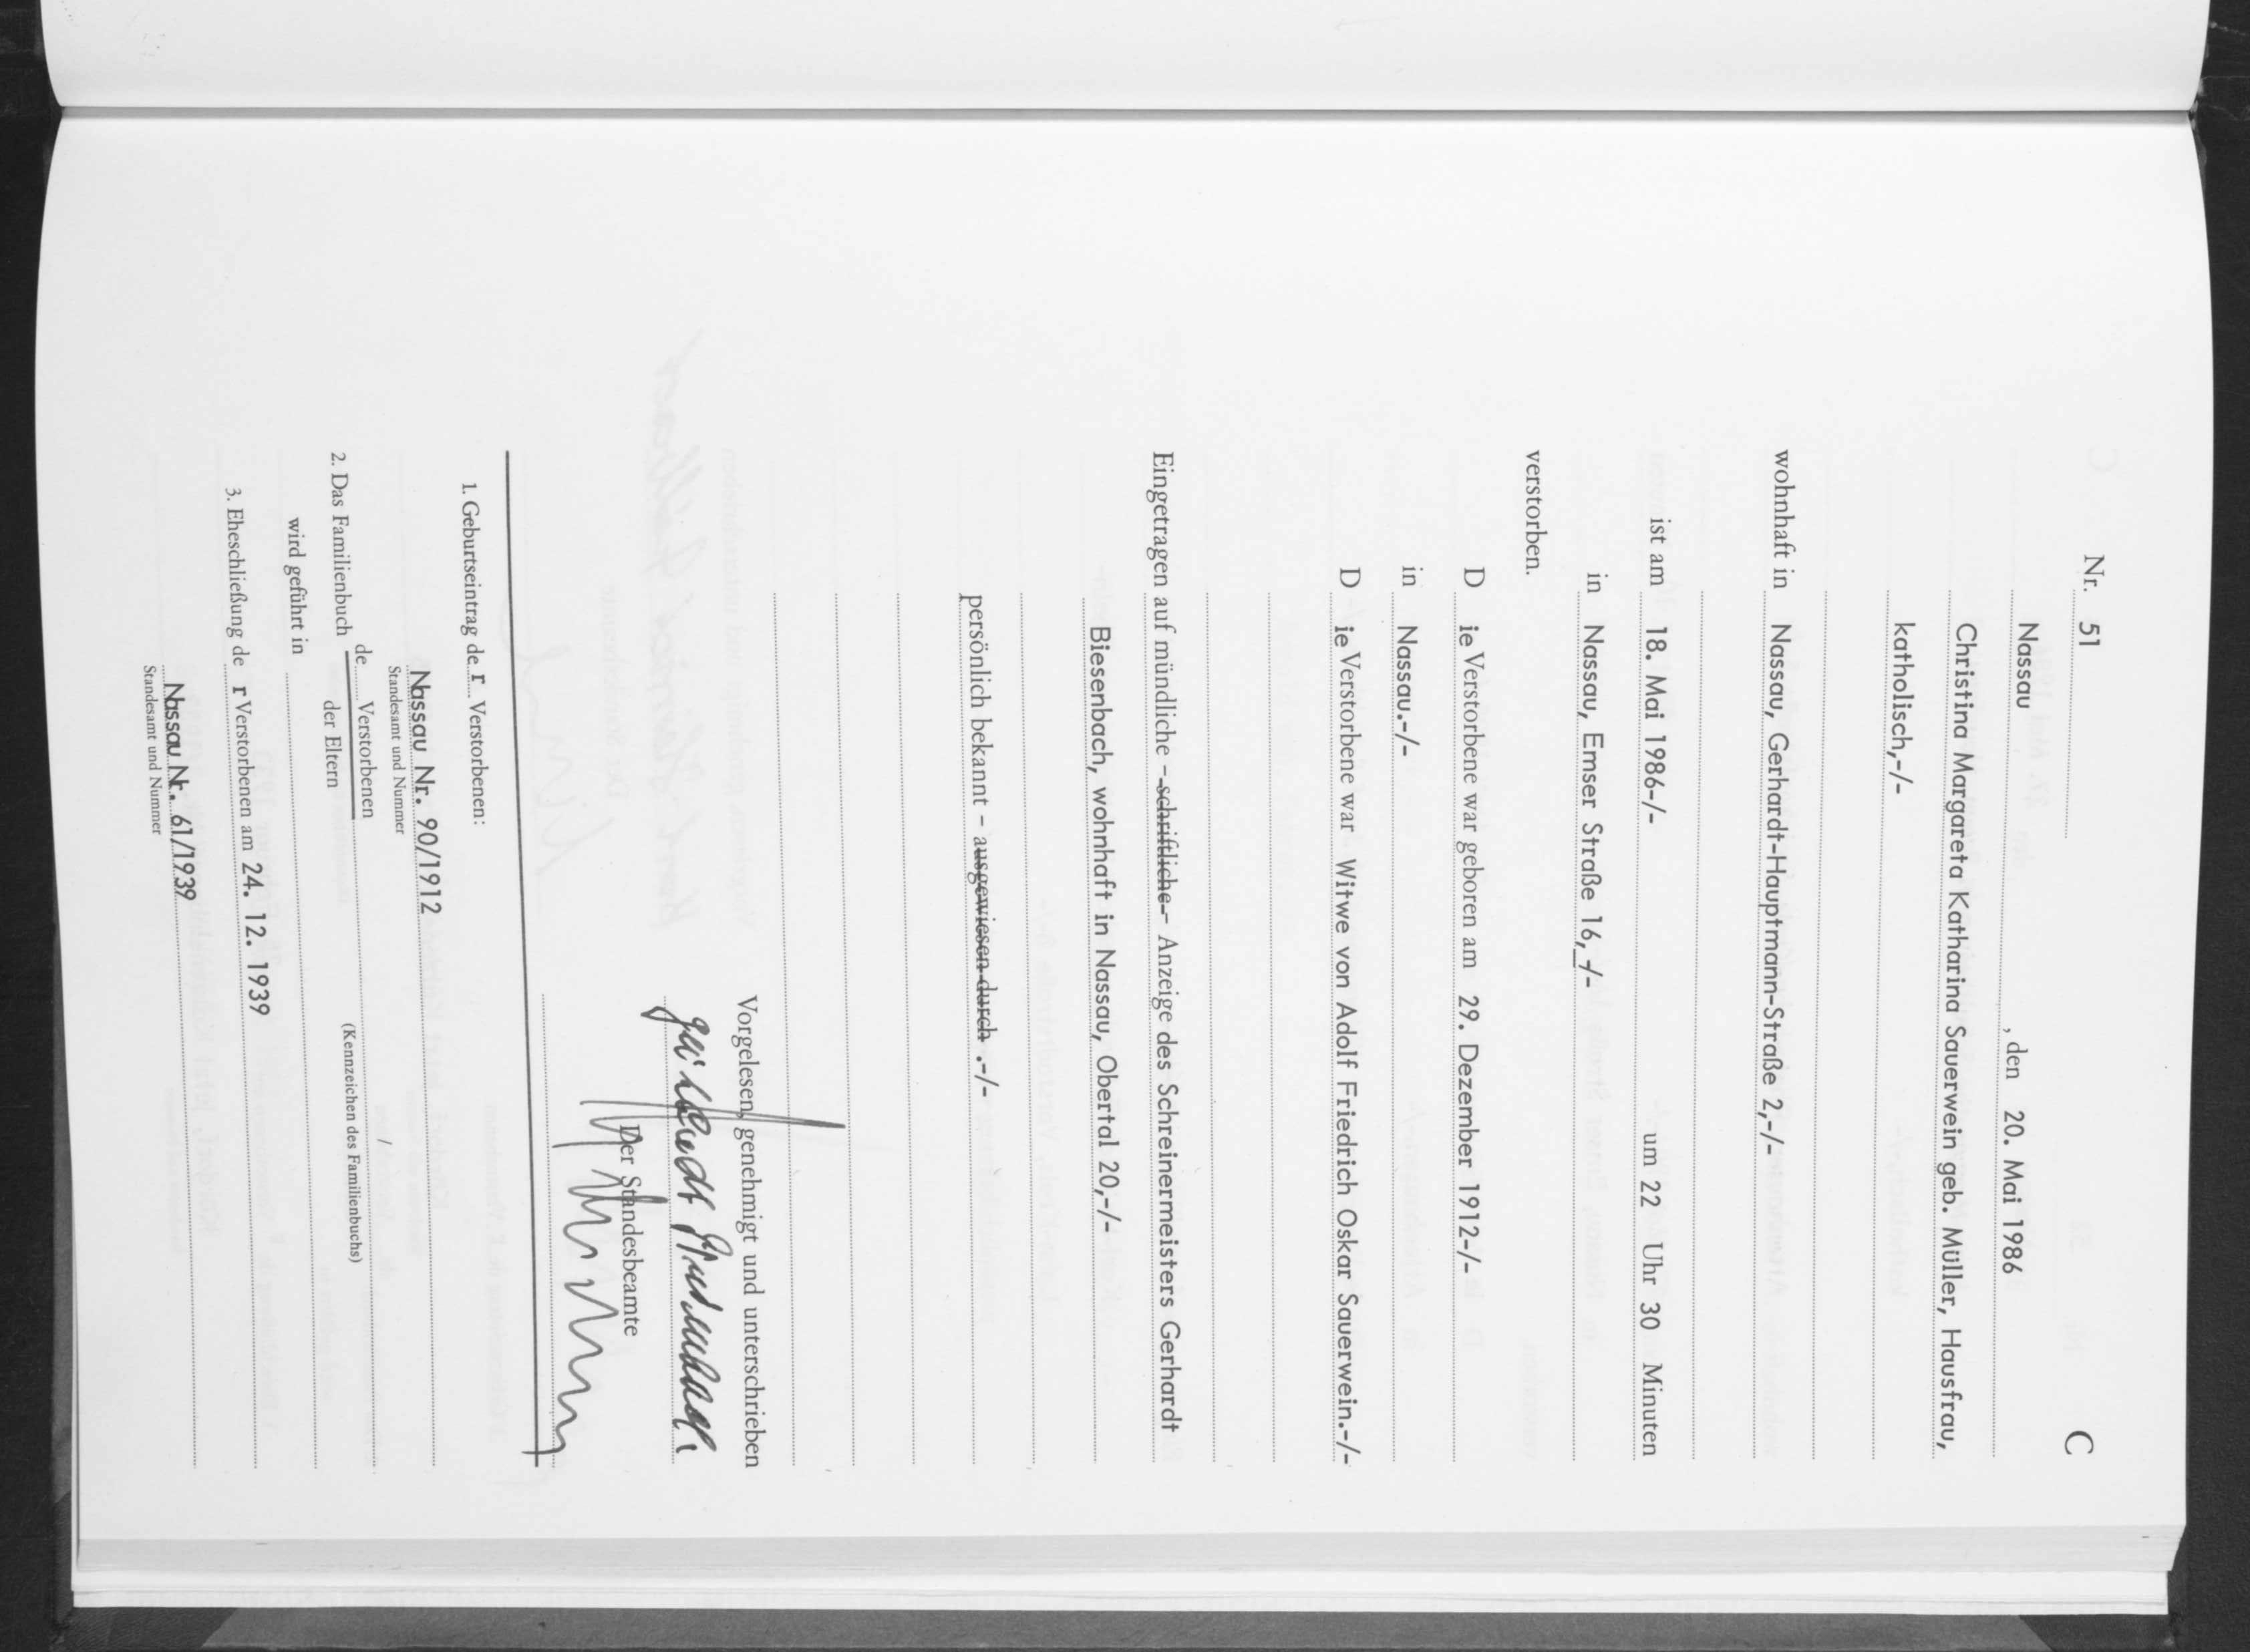 Nr. 51 C
Nassau, den 20. Mai 1986
Christina Margareta Katharina Sauerwein geb. Müller, Hausfrau,
katholisch,-/-
wohnhaft in Nassau, Gerhardt-Hauptmann-Straße 2,-/-
ist am 18. Mai 1986-/- um 22 Uhr 30 Minuten
in Nassau, Emser Straße 16,-/-
verstorben.
D ie Verstorbene war geboren am 29. Dezember 1912-/-
in Nassau.-/-
D ie Verstorbene war Witwe von Adolf Friedrich Oskar Sauerwein.-/-
Eingetragen auf mündliche - schriftliche - Anzeige des Schreinermeisters Gerhardt
Biesenbach, wohnhaft in Nassau, Obertal 20,-/-
persönlich bekannt - ausgewiesen durch .-/-
Vorgelesen, genehmigt und unterschrieben
Der Standesbeamte
1. Geburtseintrag de r Verstorbenen:
Nassau Nr. 90/1912
Standesamt und Nummer
2. Das Familienbuch de Verstorbenen /
der Eltern (Kennzeichen des Familienbuchs)
wird geführt in
3. Eheschließung de r Verstorbenen am 24. 12. 1939
Nassau Nr. 61/1939
Standesamt und Nummer